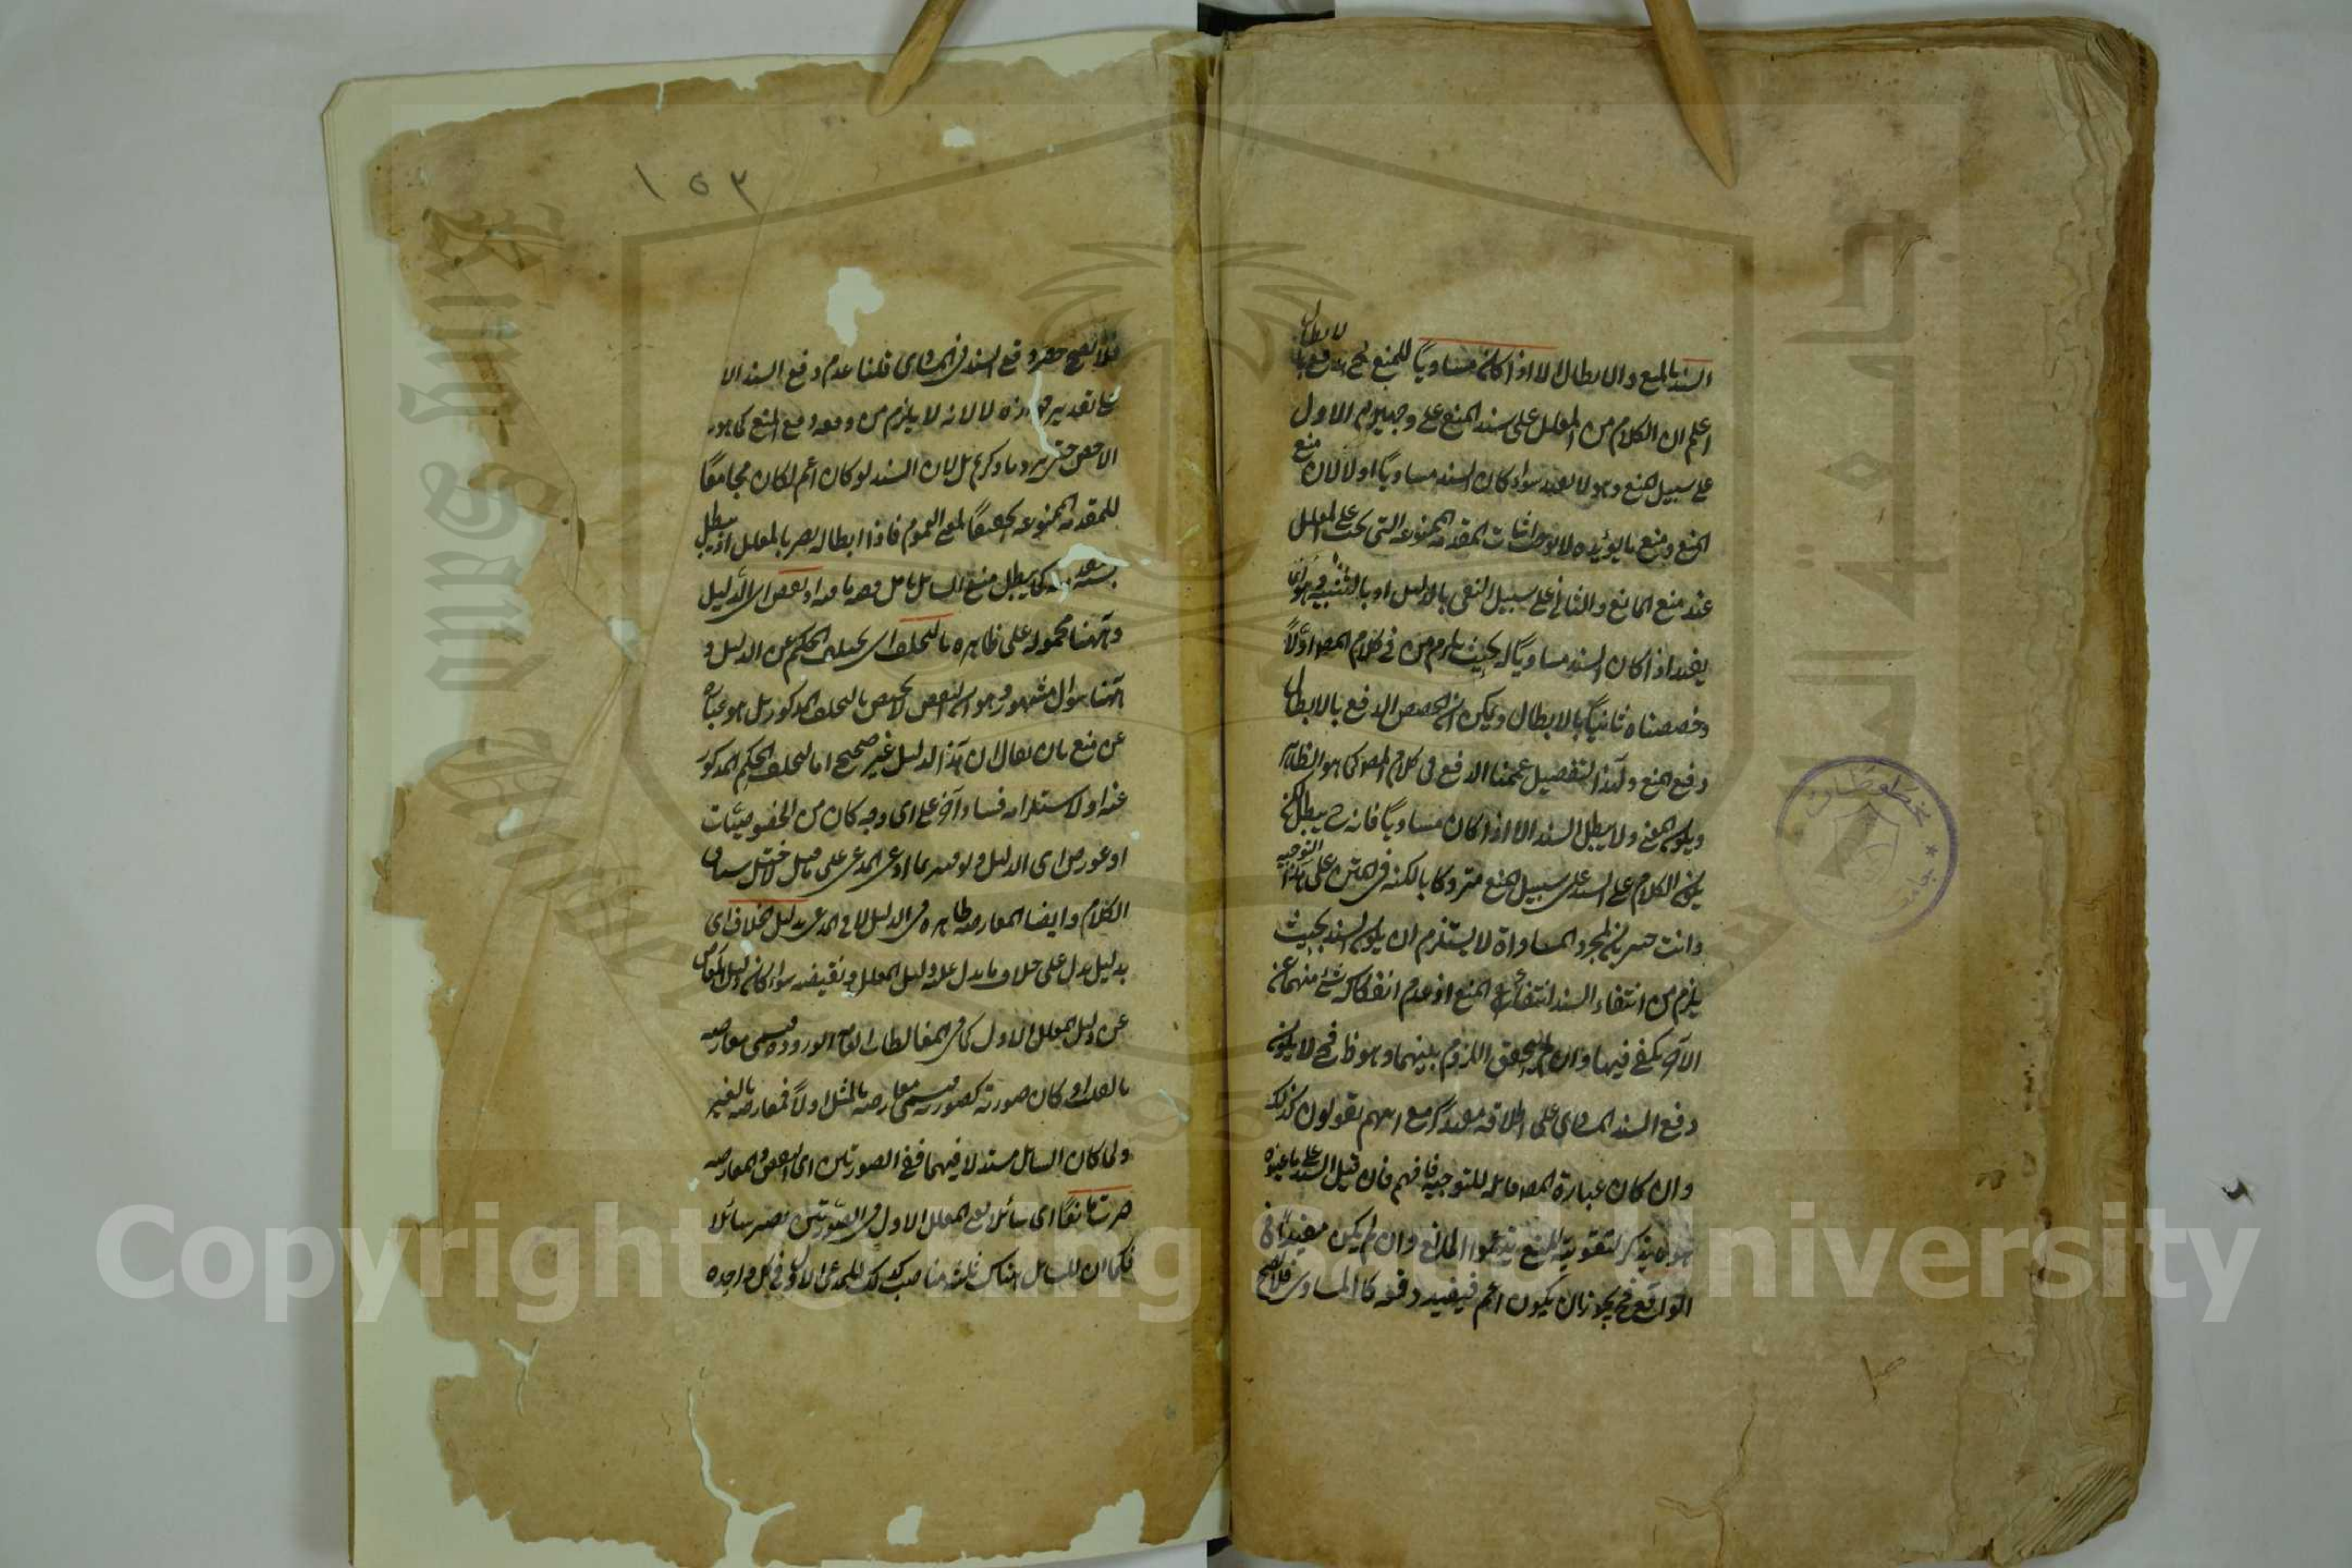 السند بالمنع والابطال الا اذا كان مساويا للمنع فح يدفع بالابطال
اعلم ان الكلام من المعلل على سند المنع على وجهين الاول
على سبيل المنع وهو لا يفيد سواء كان السند مساويا او لا لان منع
المنع ومنع ما يؤيده لا يوجب اثبات المقدمة الممنوعة التى يجب على المعلل
عند منع المانع والثانى على سبيل النفى بالدليل او بالتنبيه وهو انما
يفيد اذا كان السند مساويا له بحيث يلزم من فى كلام المص اولا
وخصصناه ثانيا بالابطال ويمكن ان يخصص الدفع بالابطال
دفع المنع ولهذا التفصيل عممنا الدفع فى كلام المص كما هو الظاهر
ويكون المعنى ولا يبطل السند الا اذا كان مساويا فانه ح يبطل لكن
يكون الكلام على السند على سبيل المنع متروكا بالكلية فى المتن على هذا التوجيه
وانت خبير بان مجرد المساواة لا يستلزم ان يكون السند بحيث
يلزم من انتفاء السند انتفاء المنع اذ عدم انفكاك شئ منهما عن
الآخر يكفى فيها وان لم يتحقق اللزوم بينهما وهو ظ فح لا يكون
دفع السند المساوى على اطلاقه مفيدا مع انهم يقولون كذلك
وان كان عبارة المص قابلة للتوجيه فافهم فان قيل السند على ما عرفوه
هو ما يذكر لتقوية المنع بزعم المانع وان لم يكن مفيدا فى
الواقع فح يجوز ان يكون اعم فيفيد دفعه كالمساوى فلا يصح
فلا يصح حصر دفع السند فى المساوى قلنا عدم دفع السند الا
على تقدير جوازه لا لانه لا يلزم من دفعه دفع المنع كما هو
الاخص حتى يرد ما ذكرتم بل لان السند لو كان اعم لكان مجامعا
للمقدمة الممنوعة تحقيقا لمعنى العموم فاذا ابطاله يضر بالمعلل اذ يبطل
كما يبطل منع السائل او نقض اى الدليل
وههنا محمول على ظاهره بالتخلف اى بتخلف الحكم عن الدليل و
ههنا سؤال مشهور وهو ان النقض لا يختص بالتخلف المذكور بل هو عبارة
عن منع بان يقال ان هذا الدليل غير صحيح اما لتخلف الحكم المذكور
عنه او لاستلزامه فسادا آخر على اى وجه كان من الخصوصيات
او عورض اى الدليل
الكلام وايضا المعارضة ظاهرة فى الدليل لا فى المدعى بدليل الخلاف اى
بدليل يدل على خلاف ما يدل عليه دليل المعلل ونقيضه سواء كان دليل المعارض
عين دليل المعلل الاول كما فى المغالطات العامة الورود ويسمى معارضة
بالقلب او كان صورته كصورته ويسمى معارضة بالمثل او لا فمعارضة بالغير
ولما كان السائل مستدلا فيهما ففى الصورتين اى النقض والمعارضة
صرت مانعا اى سائلا يعنى المعلل الاول فى الصورتين يصير سائلا
فكما ان للسائل هناك ثلثة مناصب كذلك للمدعى الاول فى كل واحدة
١٥٣